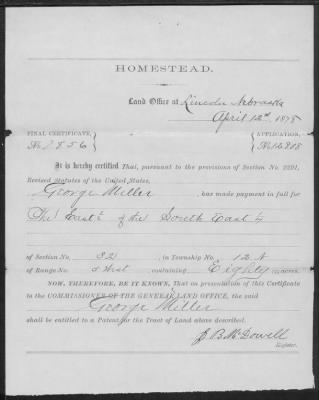 HOMESTEAD.
Land Office at Lincoln Nebraska
April 12th 1878
FINAL CERTIFICATE, APPLICATION,
No. 1856 No. 12908
It is hereby certified That, pursuant to the provisions of Section No. 2291,
Revised Statutes of the United States,
George Miller, has made payment in full for
The East ½ of the South East ¼
of Section No. 32, in Township No. 12 N
of Range No. East containing Eighty acres.
NOW, THEREFORE, BE IT KNOWN, That on presentation of this Certificate
to the COMMISSIONER OF THE GENERAL LAND OFFICE, the said
George Miller
shall be entitled to a Patent for the Tract of Land above described.
J B McDowell
Register.